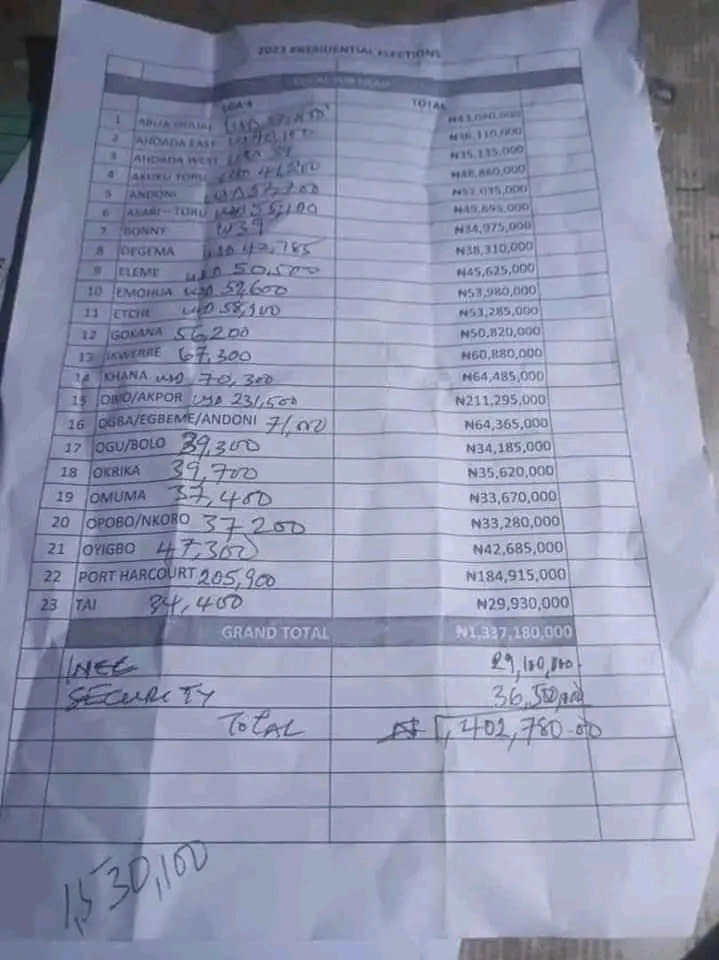 2023 PRESIDENTIAL ELECTIONS
LGA'S TOTAL
1 ABUA ODUAL USD
2 AHOADA EAST
3 AHOADA WEST ₦35,135,000
4 AKUKU TORU
5 ANDONI ₦52,035,000
6 ASARI-TORU USD 55,100 ₦49,695,000
7 BONNY ₦34,975,000
8 DEGEMA USD 42,785 ₦38,310,000
9 ELEME USD 50,500 ₦45,625,000
10 EMOHUA USD 59,600 ₦53,980,000
11 ETCHE USD 58,900 ₦53,285,000
12 GOKANA 56,200 ₦50,820,000
13 IKWERRE 67,300 ₦60,880,000
14 KHANA USD 70,300 ₦64,485,000
15 OBIO/AKPOR USD 231,500 ₦211,295,000
16 OGBA/EGBEME/ANDONI 71,000 ₦64,365,000
17 OGU/BOLO 39,300 ₦34,185,000
18 OKRIKA 39,700 ₦35,620,000
19 OMUMA 37,400 ₦33,670,000
20 OPOBO/NKORO 37200 ₦33,280,000
21 OYIGBO 47,300 ₦42,685,000
22 PORT HARCOURT 205,900 ₦184,915,000
23 TAI 34,400 ₦29,930,000
GRAND TOTAL ₦1,337,180,000
INEC 29,100,000
SECURITY 36,500,000
TOTAL ₦1,402,780.00
1,530,100